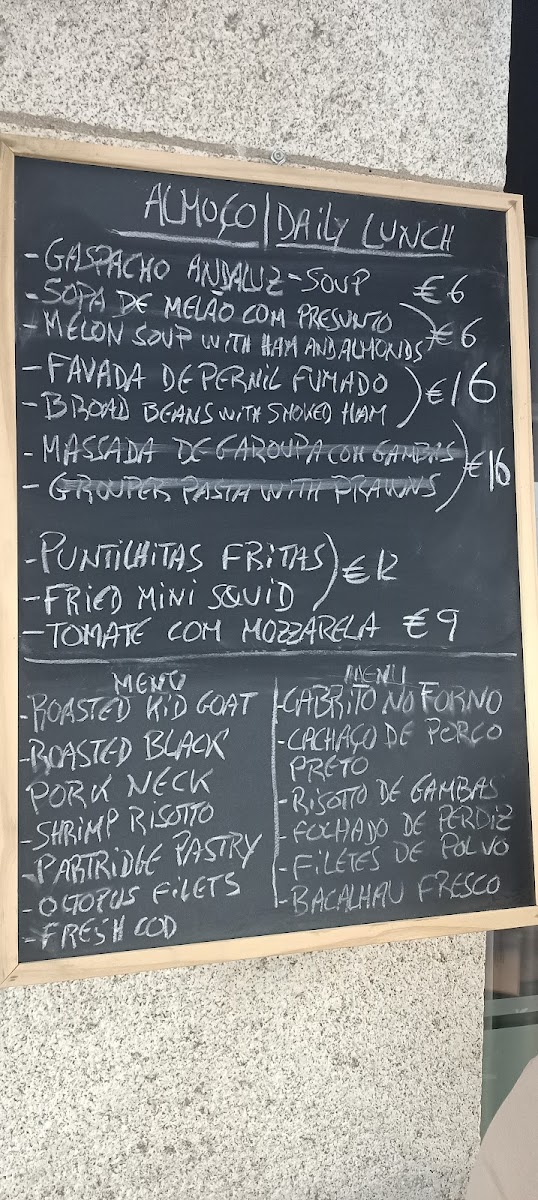 ALMOÇO | DAILY LUNCH
- GASPACHO ANDALUZ - SOUP €6
- SOPA DE MELÃO COM PRESUNTO
- MELON SOUP WITH HAM AND ALMONDS €6
- FAVADA DE PERNIL FUMADO
- BROAD BEANS WITH SMOKED HAM €16
- MASSADA DE GAROUPA COM GAMBAS
- GROUPER PASTA WITH PRAWNS €16
- PUNTILHITAS FRITAS
- FRIED MINI SQUID €12
- TOMATE COM MOZZARELA €9
MENU
- ROASTED KID GOAT
- ROASTED BLACK
PORK NECK
- SHRIMP RISOTTO
- PARTRIDGE PASTRY
- OCTOPUS FILETS
- FRESH COD
MENU
- CABRITO NO FORNO
- CACHAÇO DE PORCO
PRETO
- RISOTTO DE GAMBAS
- FOLHADO DE PERDIZ
- FILETES DE POLVO
- BACALHAU FRESCO